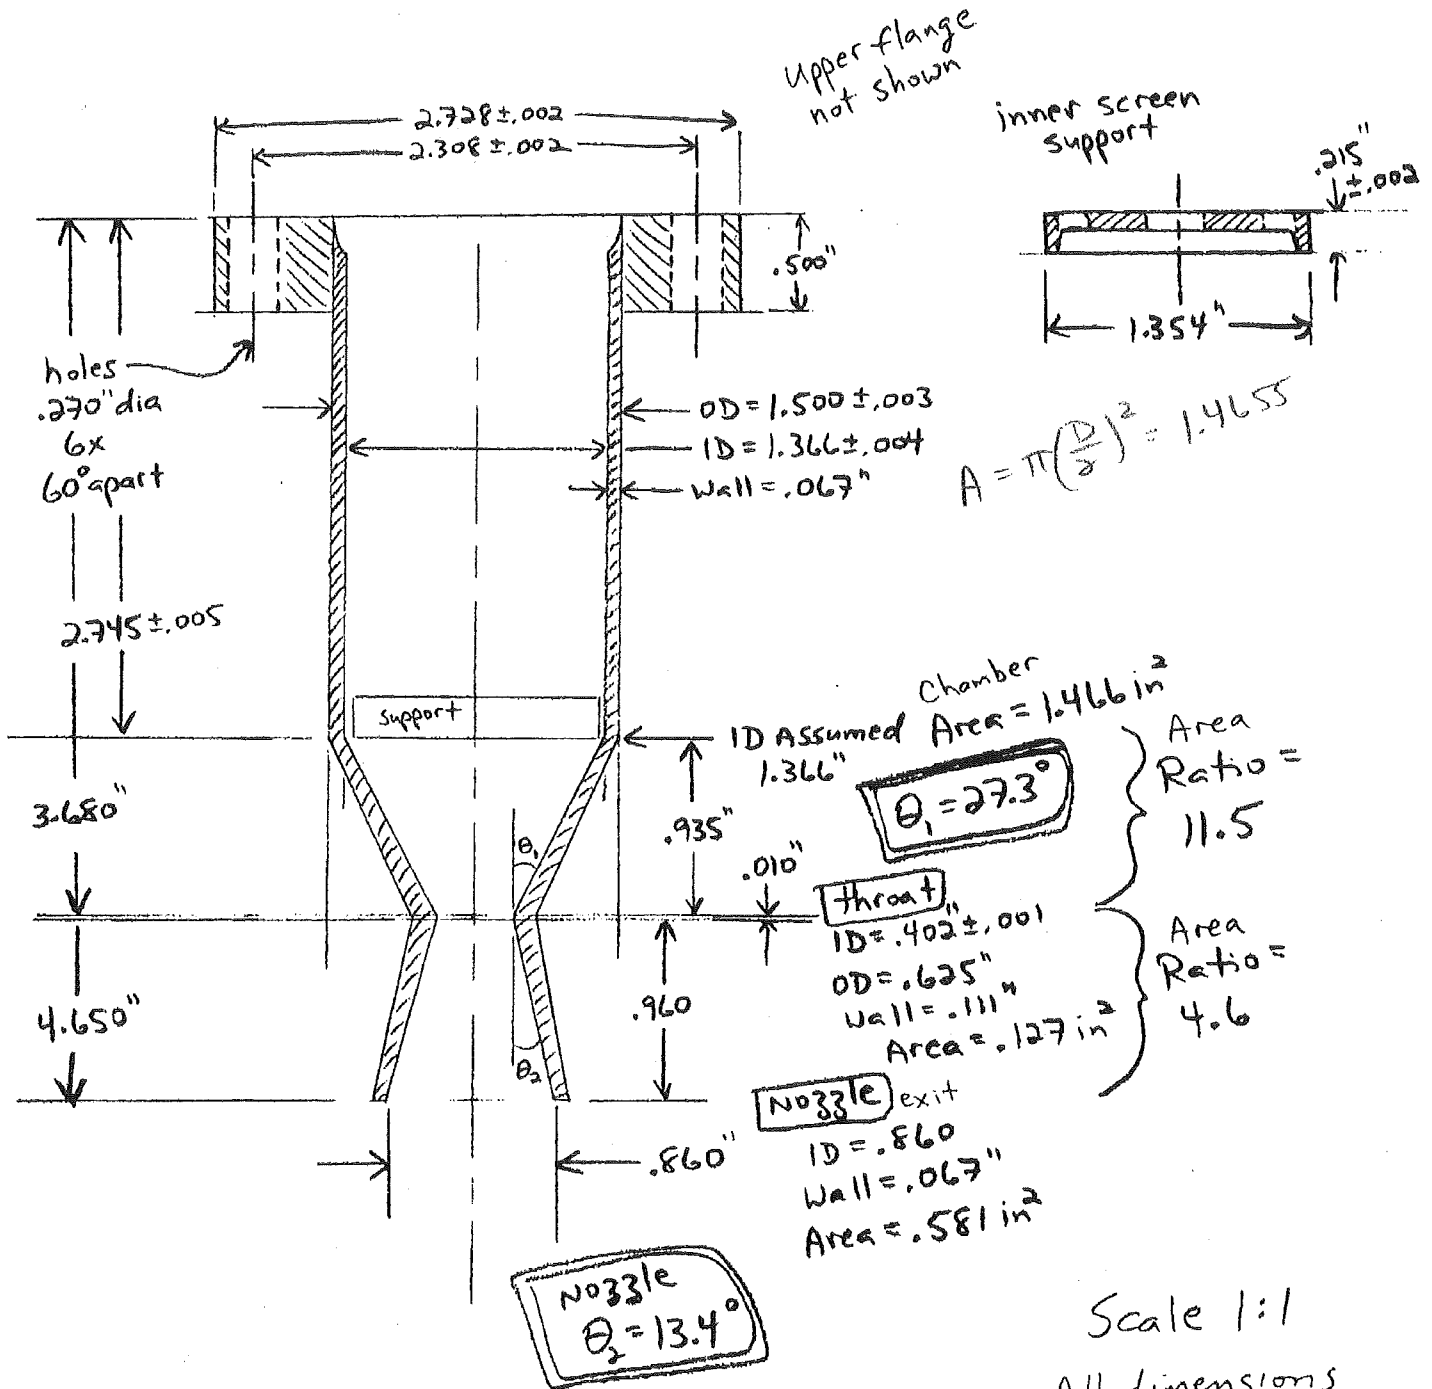 upper flange
not shown
inner screen
support
2.728±.002
2.308±.002
.215"
±.002
.500"
1.354"
holes
.270"dia
6x
60°apart
OD=1.500±.003
ID=1.366±.004
Wall=.067"
A=π(D/2)²=1.4655
2.745±.005
support
Chamber
ID Assumed Area=1.466in²
1.366"
θ₁=27.3°
Area
Ratio=
11.5
3.680"
.935"
θ₁
.010"
throat
ID=.402"±.001
OD=.625"
Wall=.111"
Area=.127in²
Area
Ratio=
4.6
4.650"
.960
θ₂
Nozzle exit
ID=.860
Wall=.067"
Area=.581in²
.860"
Nozzle
θ₂=13.4°
Scale 1:1
All dimensions